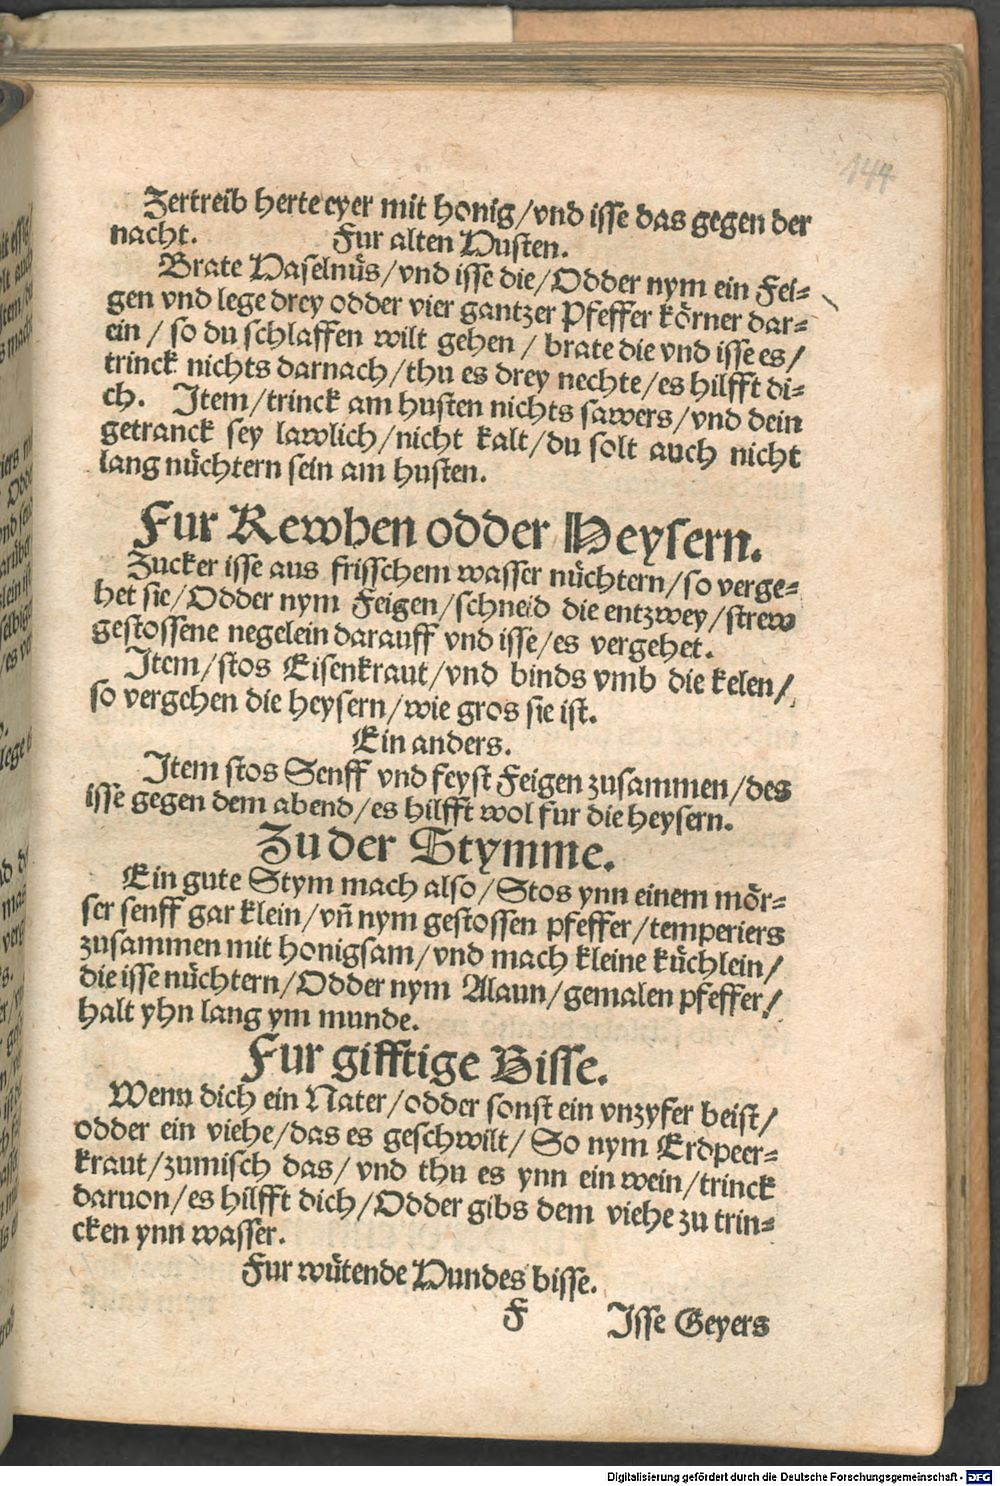 144
Zertreib herte eyer mit honig/vnd isse das gegen der
nacht. Fur alten Husten.
Brate Haselnüs/vnd isse die/Odder nym ein Fei=
gen vnd lege drey odder vier gantzer Pfeffer körner dar=
ein/so du schlaffen wilt gehen/brate die vnd isse es/
trinck nichts darnach/thu es drey nechte/es hilfft di=
ch. Item/trinck am husten nichts sawers/vnd dein
getranck sey lawlich/nicht kalt/du solt auch nicht
lang nüchtern sein am husten.
Fur Rewhen odder Heysern.
Zucker isse aus frisschem wasser nüchtern/so verge=
het sie/Odder nym Feigen/schneid die entzwey/strew
gestossene negelein darauff vnd isse/es vergehet.
Item/stos Eisenkraut/vnd binds vmb die kelen/
so vergehen die heysern/wie gros sie ist.
Ein anders.
Item stos Senff vnd feyst Feigen zusammen/des
isse gegen dem abend/es hilfft wol fur die heysern.
Zu der Stymme.
Ein gute Stym mach also/Stos ynn einem mör=
ser senff gar klein/vñ nym gestossen pfeffer/temperiers
zusammen mit honigsam/vnd mach kleine küchlein/
die isse nüchtern/Odder nym Alaun/gemalen pfeffer/
halt yhn lang ym munde.
Fur gifftige Bisse.
Wenn dich ein Nater/odder sonst ein vnzyfer beist/
odder ein viehe/das es geschwilt/So nym Erdpeer=
kraut/zumisch das/vnd thu es ynn ein wein/trinck
daruon/es hilfft dich/Odder gibs dem viehe zu trin=
cken ynn wasser.
Fur wütende Hundes bisse.
F Isse Geyers
Digitalisierung gefördert durch die Deutsche Forschungsgemeinschaft - DFG